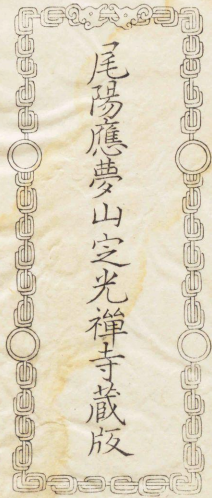 尾陽應夢山定光禪寺藏版